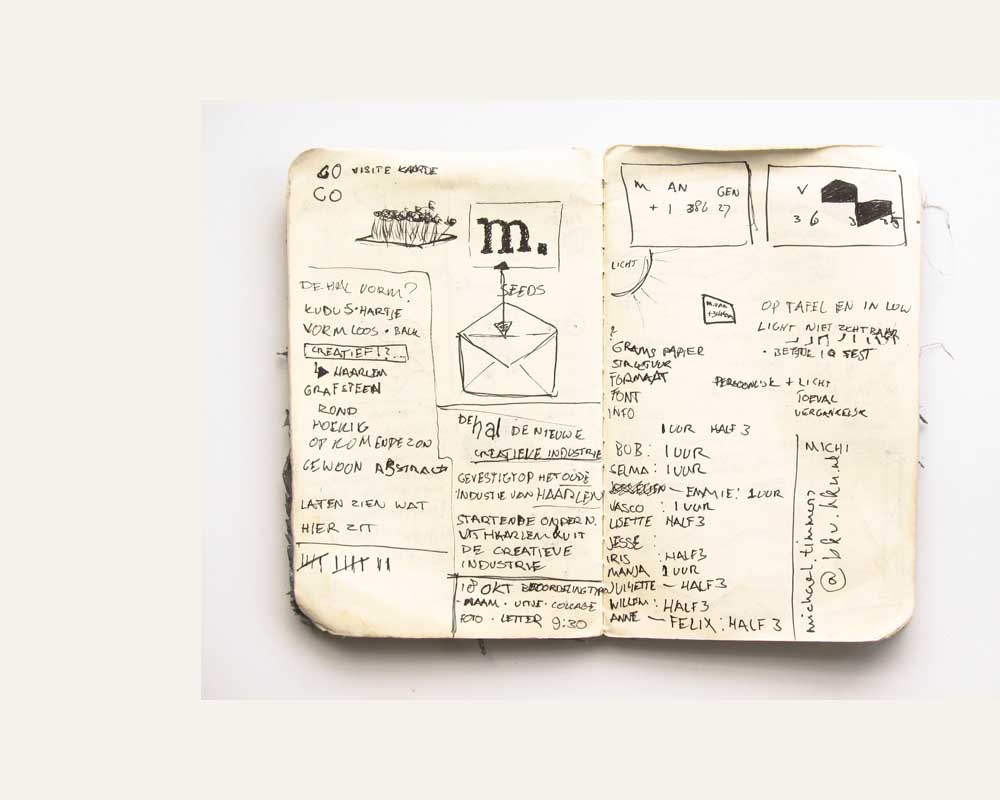 GO VISITE KAARTJE
GO
m.
SEEDS
DE HAL VORM?
KUDUS·HARTJE
VORMLOOS · BALK
CREATIEF!?...
HAARLEM
GRAFSTEEN
ROND
HOEKIG
OPKOMENDE ZON
GEWOON ABSTRACT
LATEN ZIEN WAT
HIER ZIT
DE hal DE NIEUWE
CREATIEVE INDUSTRIE
GEVESTIGT OP HET OUDE
INDUSTIE VAN HAARLEM
STARTENDE ONDERN.
UIT HAARLEM & UIT
DE CREATIEVE
INDUSTRIE
18 OKT BEOORDELING
NAAM · COLLAGE
FOTO · LETTER 9:30
M. AN GEN
+ 1 386 27
V
3 6 3
LICHT
M. VAN
OP TAFEL EN IN LOW
LICHT NIET ZICHTBAAR
?
GRAMS PAPIER
STRUCTUUR
FORMAAT
FONT
INFO
PERSOONLIJK + LICHT
TOEVAL
VERGANKELIJK
1 UUR HALF 3
BOB: 1 UUR
SELMA: 1 UUR
EMMIE: 1 UUR
VASCO : 1 UUR
LISETTE HALF 3
JESSE :
IRIS : HALF 3
MANJA 1 UUR
JULIETTE – HALF 3
WILLEM : HALF 3
ANNE – FELIX : HALF 3
MICHI
michael.timmers
@bkv.hku.nl